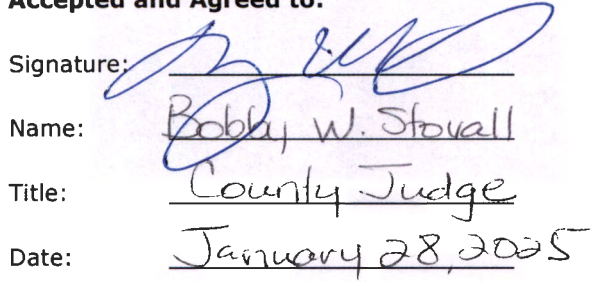 Accepted and Agreed to:
Signature:
Name: Bobby W. Stovall
Title: County Judge
Date: January 28, 2025